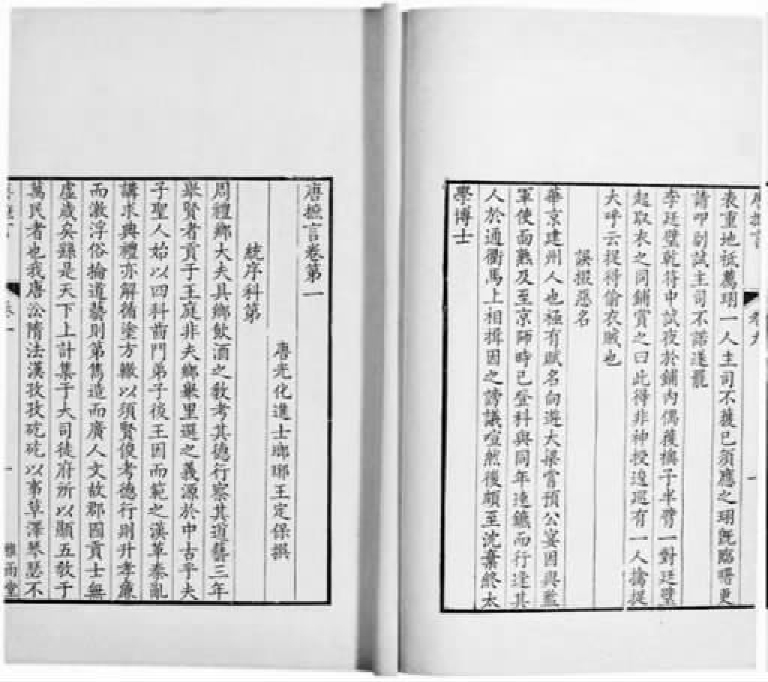 唐摭言 卷九 一
表重地祗薦珝一人主司不獲已須應之珝旣臨曙更
請叩副試主司不諾遂罷
李廷璧乾符中試夜於鋪內偶獲襖子半臂一對廷璧
起取衣之同鋪賞之曰此得非神授逡巡有一人擒捉
大呼云捉得偷衣賊也
誤掇惡名
華京建州人也極有賦名向遊大梁嘗預公宴因與監
軍使面熟及至京師時已登科與同年連鑣而行逢其
人於通衢馬上相揖因之謗議喧然後頗至沈棄終太
學博士
唐摭言卷第一
唐光化進士瑯琊王定保撰
統序科第
周禮鄉大夫具鄉飲酒之敎考其德行察其道藝三年
舉賢者貢于王庭非夫鄉舉里選之義源於中古乎夫
子聖人始以四科齒門弟子後王因而範之漢革秦亂
講求典禮亦解循塗方轍以須賢俊考德行則升孝廉
而激浮俗掄道藝則第雋造而廣人文故郡國貢士無
虛歲矣繇是天下上計集于大司徒府所以顯五敎于
萬民者也我唐沿隋法漢孜孜矻矻以事草澤琴瑟不
卷一 一 雅雨堂